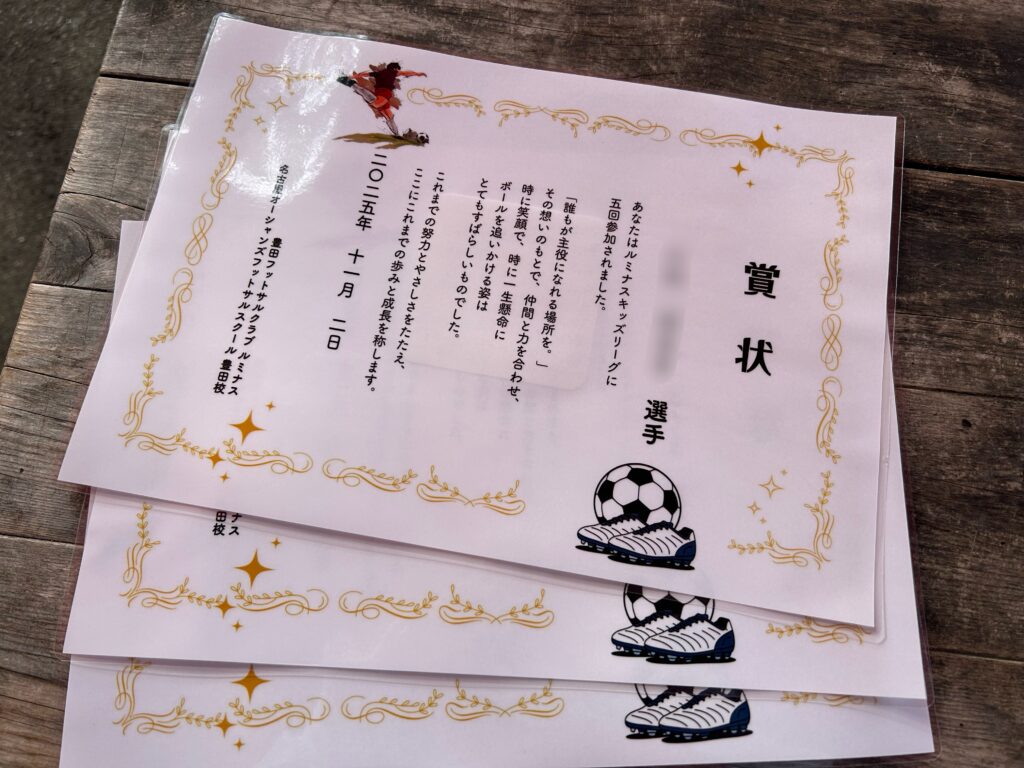 賞状
選手
あなたはルミナスキッズリーグに
五回参加されました。
「誰もが主役になれる場所を。」
その想いのもとで、仲間と力を合わせ、
時に笑顔で、時に一生懸命に
ボールを追いかける姿は
とてもすばらしいものでした。
これまでの努力とやさしさをたたえ、
ここにこれまでの歩みと成長を称します。
二〇二五年 十一月 二日
豊田フットサルクラブ ルミナス
名古屋オーシャンズフットサルスクール 豊田校
ナス
田校